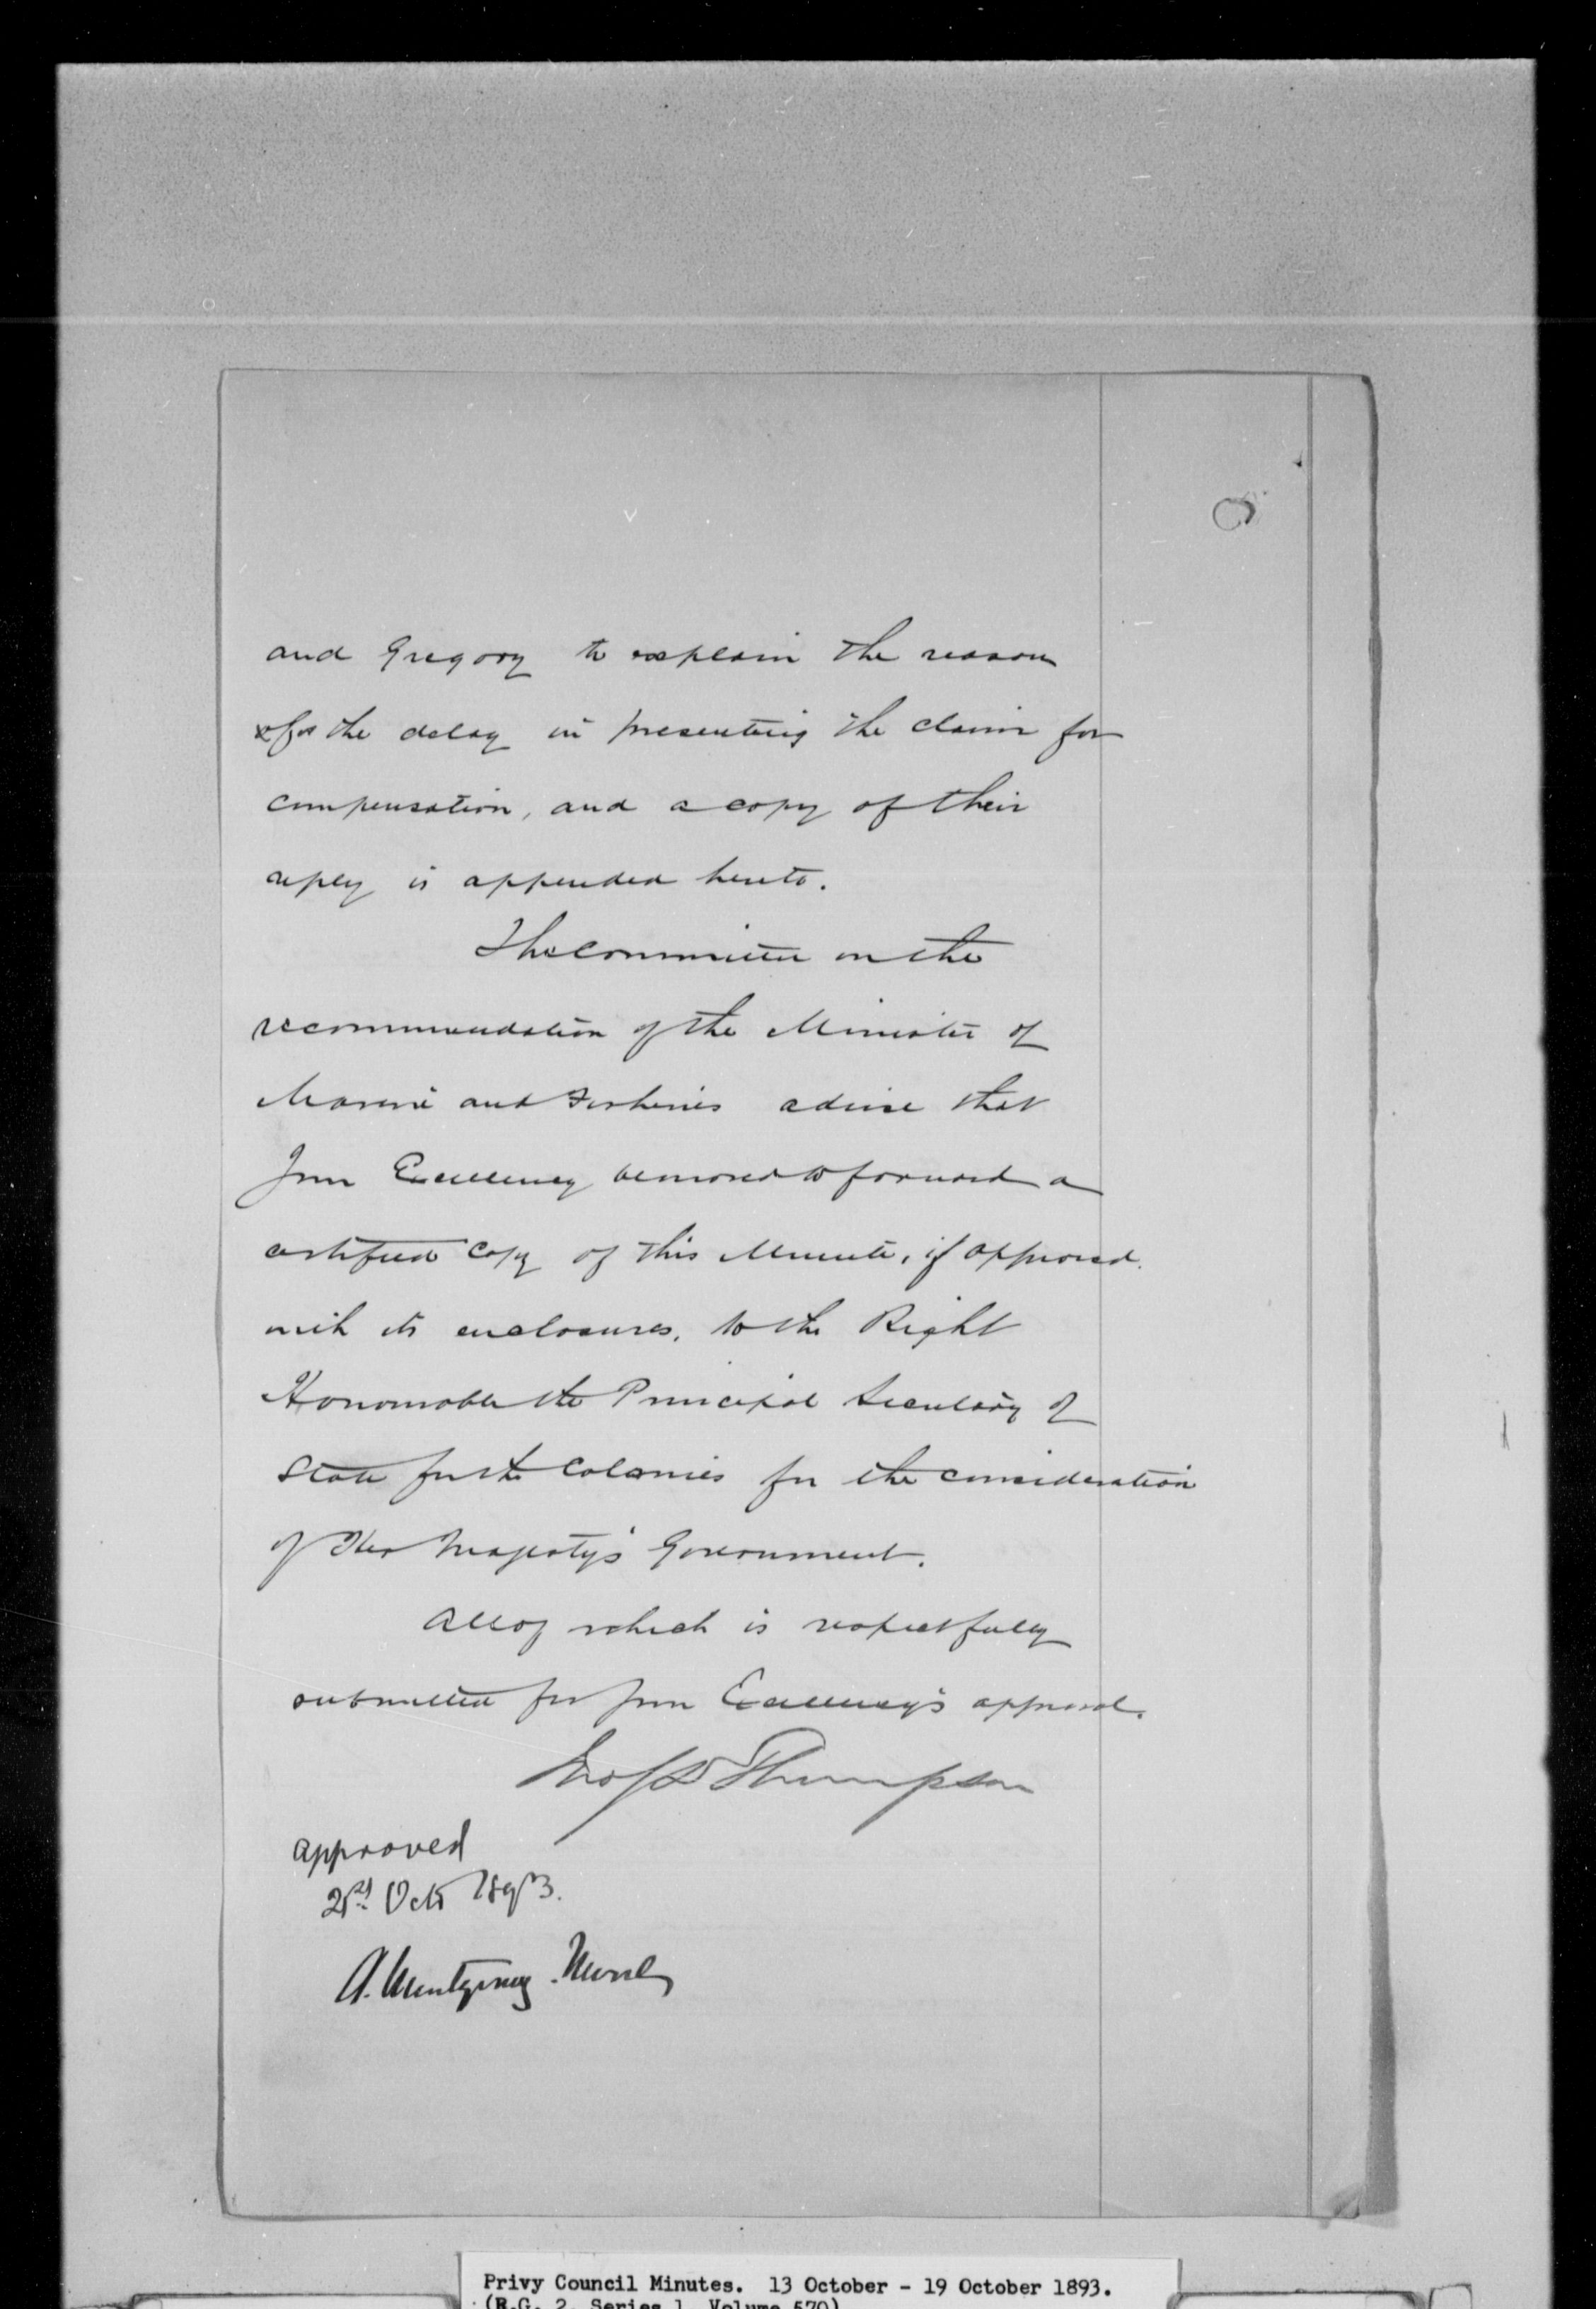 and Gregory to explain the reason
for the delay in presenting the claim for
compensation, and a copy of their
reply is appended hereto.
The Committee on the
recommendation of the Minister of
Marine and Fisheries advise that
Your Excellency be moved to forward a
certified copy of this Minute, if approved.
with its enclosures, to the Right
Honourable the Principal Secretary of
State for the Colonies for the consideration
of Her Majesty's Government.
All of which is respectfully
submitted for Your Excellency's approval.
Jno S D Thompson
approved
21st Octr 1893.
A. Montgomery Moore
Privy Council Minutes. 13 October - 19 October 1893.
(R.G. 2, Series 1, Volume 570)